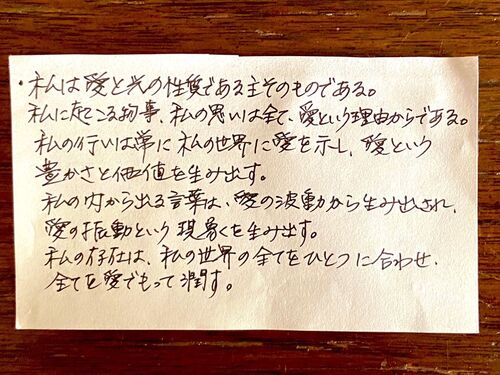 ・私は愛と光の性質である主そのものである。
私に起こる物事、私の思いは全て、愛という理由からである。
私の行いは常に私の世界に愛を示し、愛という
豊かさと価値を生み出す。
私の内から出る言葉は、愛の波動から生み出され、
愛の振動という現象を生み出す。
私の存在は、私の世界の全てをひとつに合わせ、
全てを愛でもって潤す。